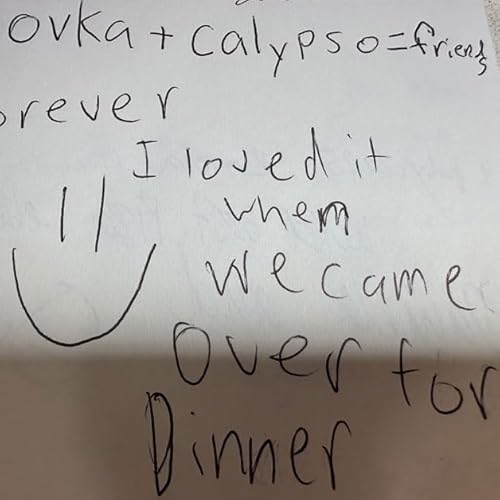 ovka + calypso = friends
orever
I loved it
whem
we came
over for
Dinner